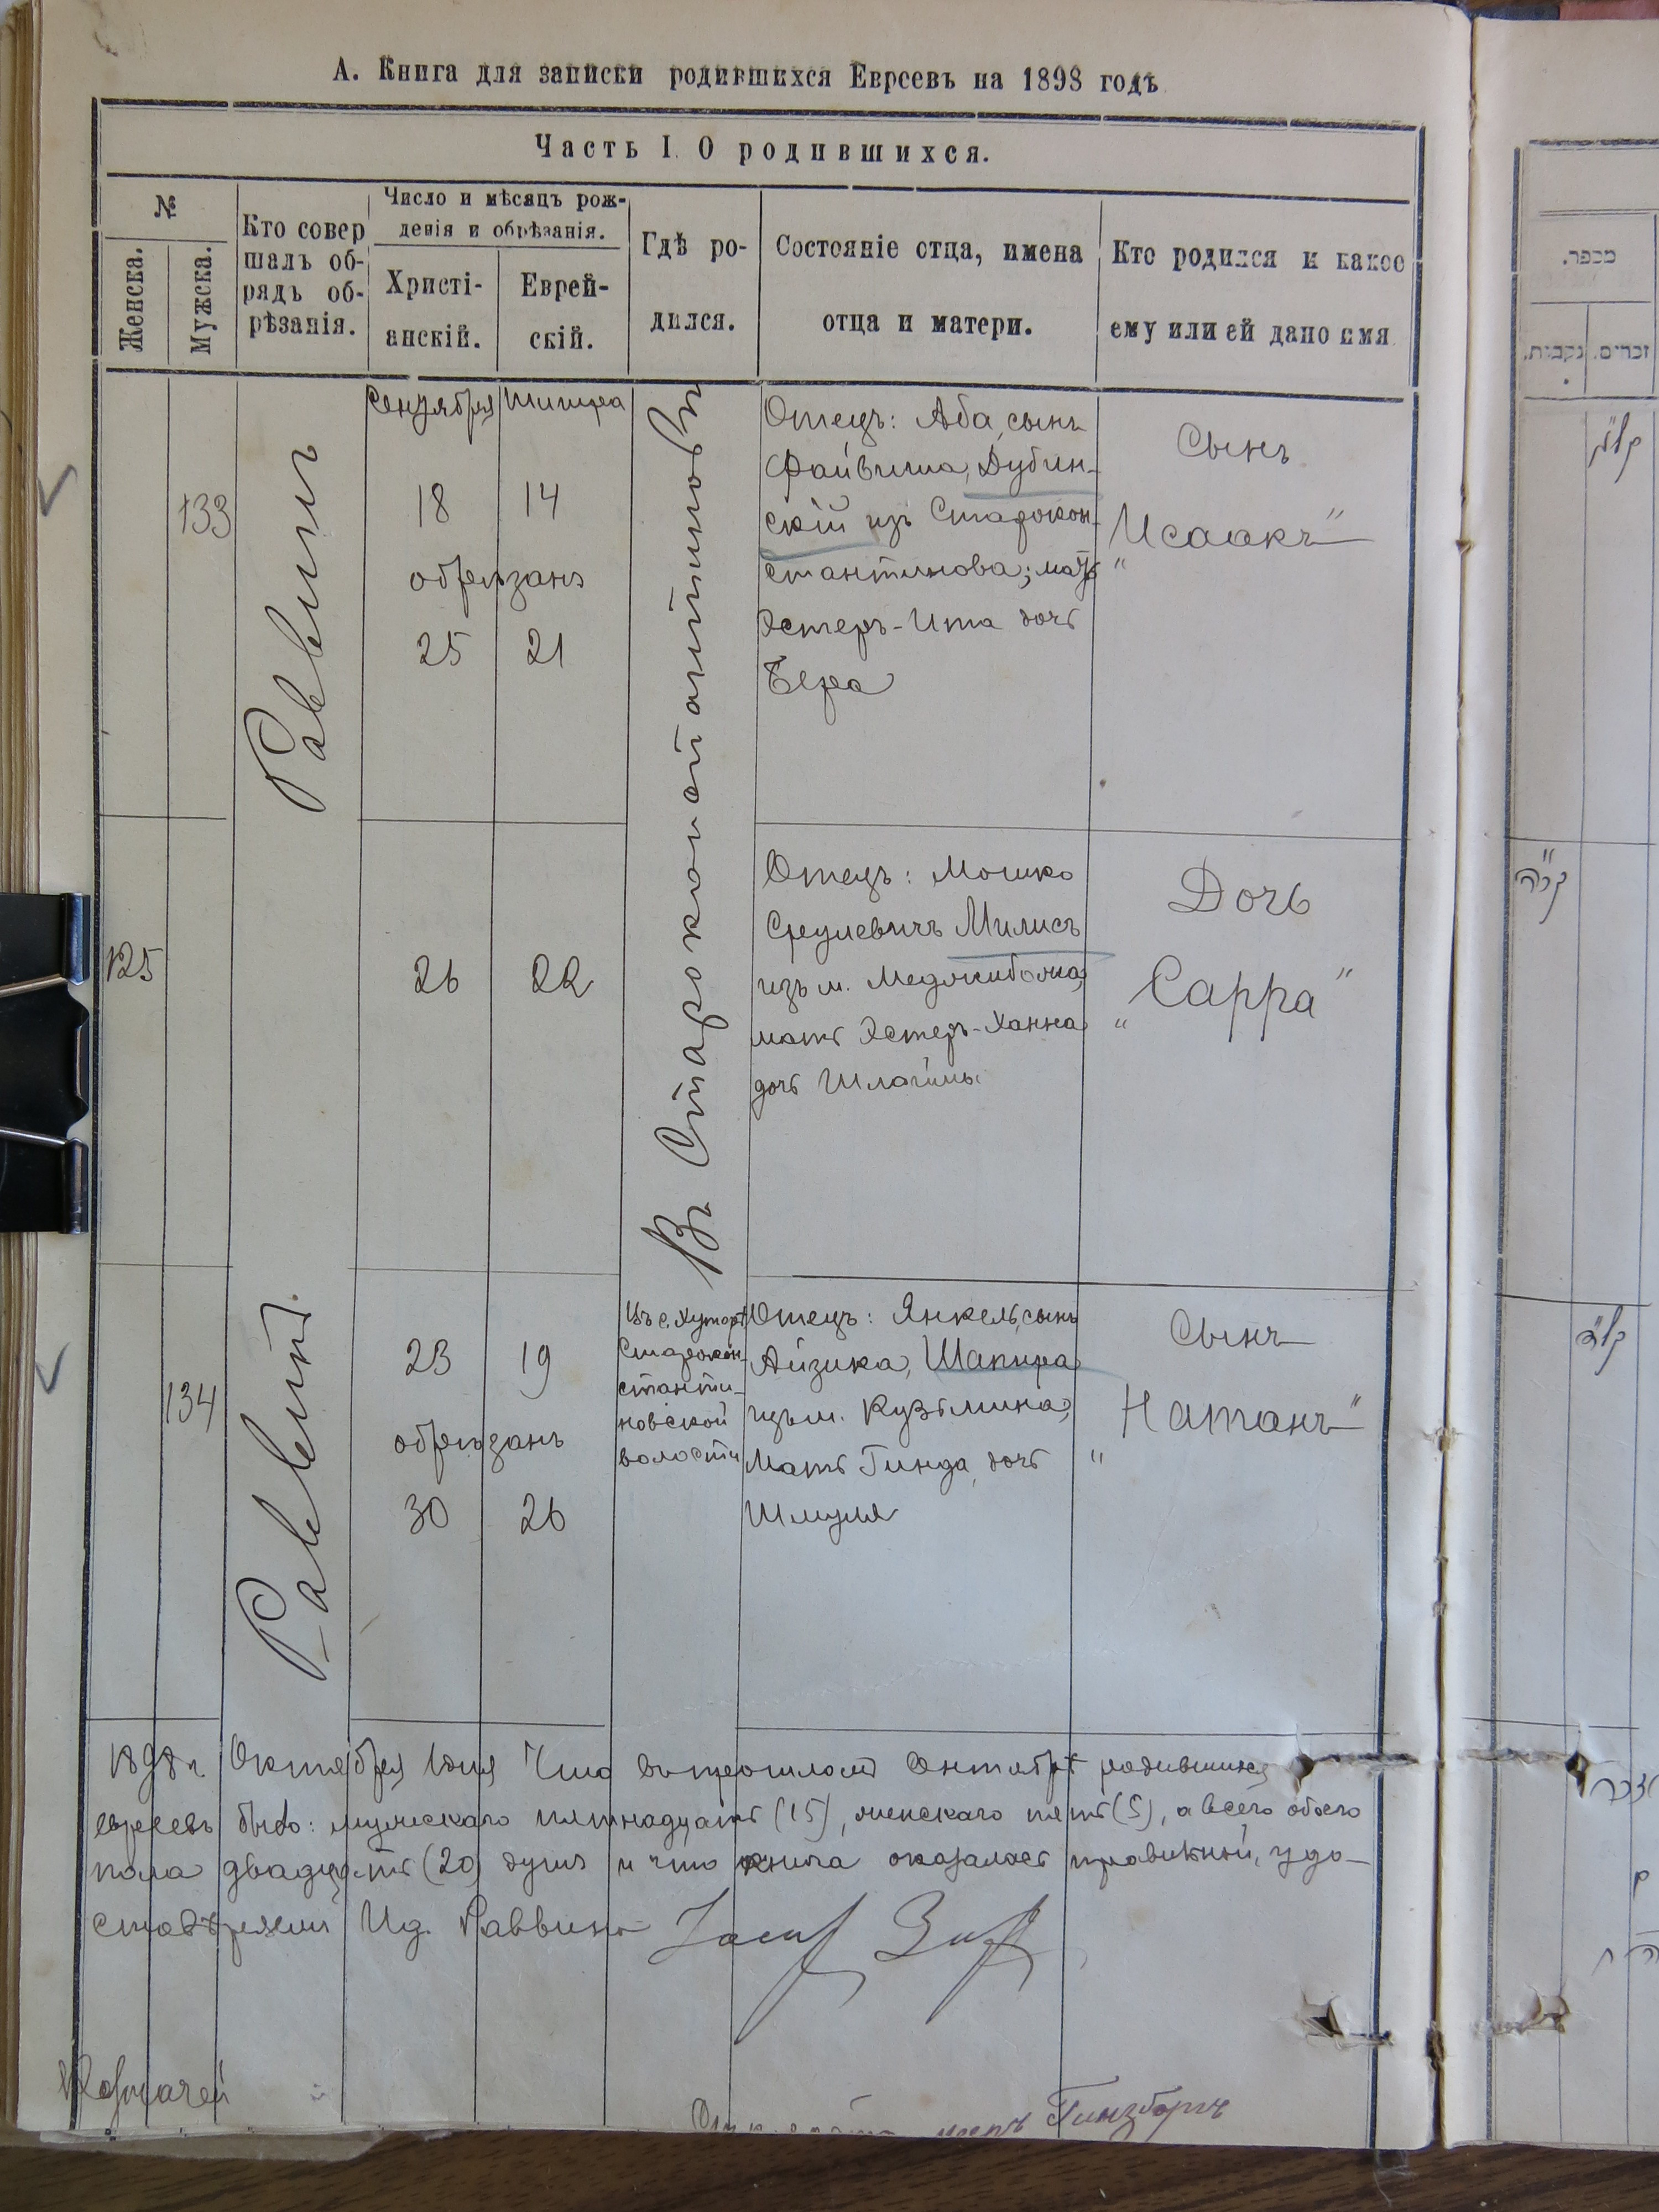 А. Книга для записки родившихся Евреевъ на 1898 годъ
Часть I. О родившихся.
№
Женска.
Мужска.
Кто совер
шалъ об-
рядъ об-
рѣзанія.
Число и мѣсяцъ рож-
денія и обрѣзанія.
Христі-
анскій.
Еврей-
скій.
Гдѣ ро-
дился.
Состояніе отца, имена
отца и матери.
Кто родился и какое
ему или ей дано имя
מספר.
נקבות.
זכרים.
133
Раввинъ
Сентября
18
обрѣзанъ
25
Тишра
14
21
Въ Староконстантиновѣ
Отецъ: Аба, сынъ
Файвиша, Дубин-
скій изъ Старокон-
стантинова; мать
Эстеръ-Ита дочь
Бера
Сынъ
"Исаакъ"
קל״ג
125
26
22
Отецъ: Мошко
Срулевичъ Милисъ
изъ м. Меджибожа,
мать Эстеръ-Ханна
дочь Шлаймы
Дочь
"Сарра"
קכ״ה
134
Раввинъ.
23
19
обрѣзанъ
30
26
Въ с. Хуторѣ
Старокон-
станти-
новской
волости
Отецъ: Янкель, сынъ
Айзика, Шапира
изъ м. Кузьмина,
Мать Гинда, дочь
Шмуля
Сынъ
"Натанъ"
קל״ד
1898 г. Октября 1 дня Что въ прошломъ Сентябрѣ родившихся
евреевъ было: мужескаго пятнадцать (15), женскаго пять (5), а всего обоего
пола двадцать (20) душъ и что книга оказалась правильной, удо-
стовѣряемъ Ид. Раввина
Казначей
Гинзбургъ